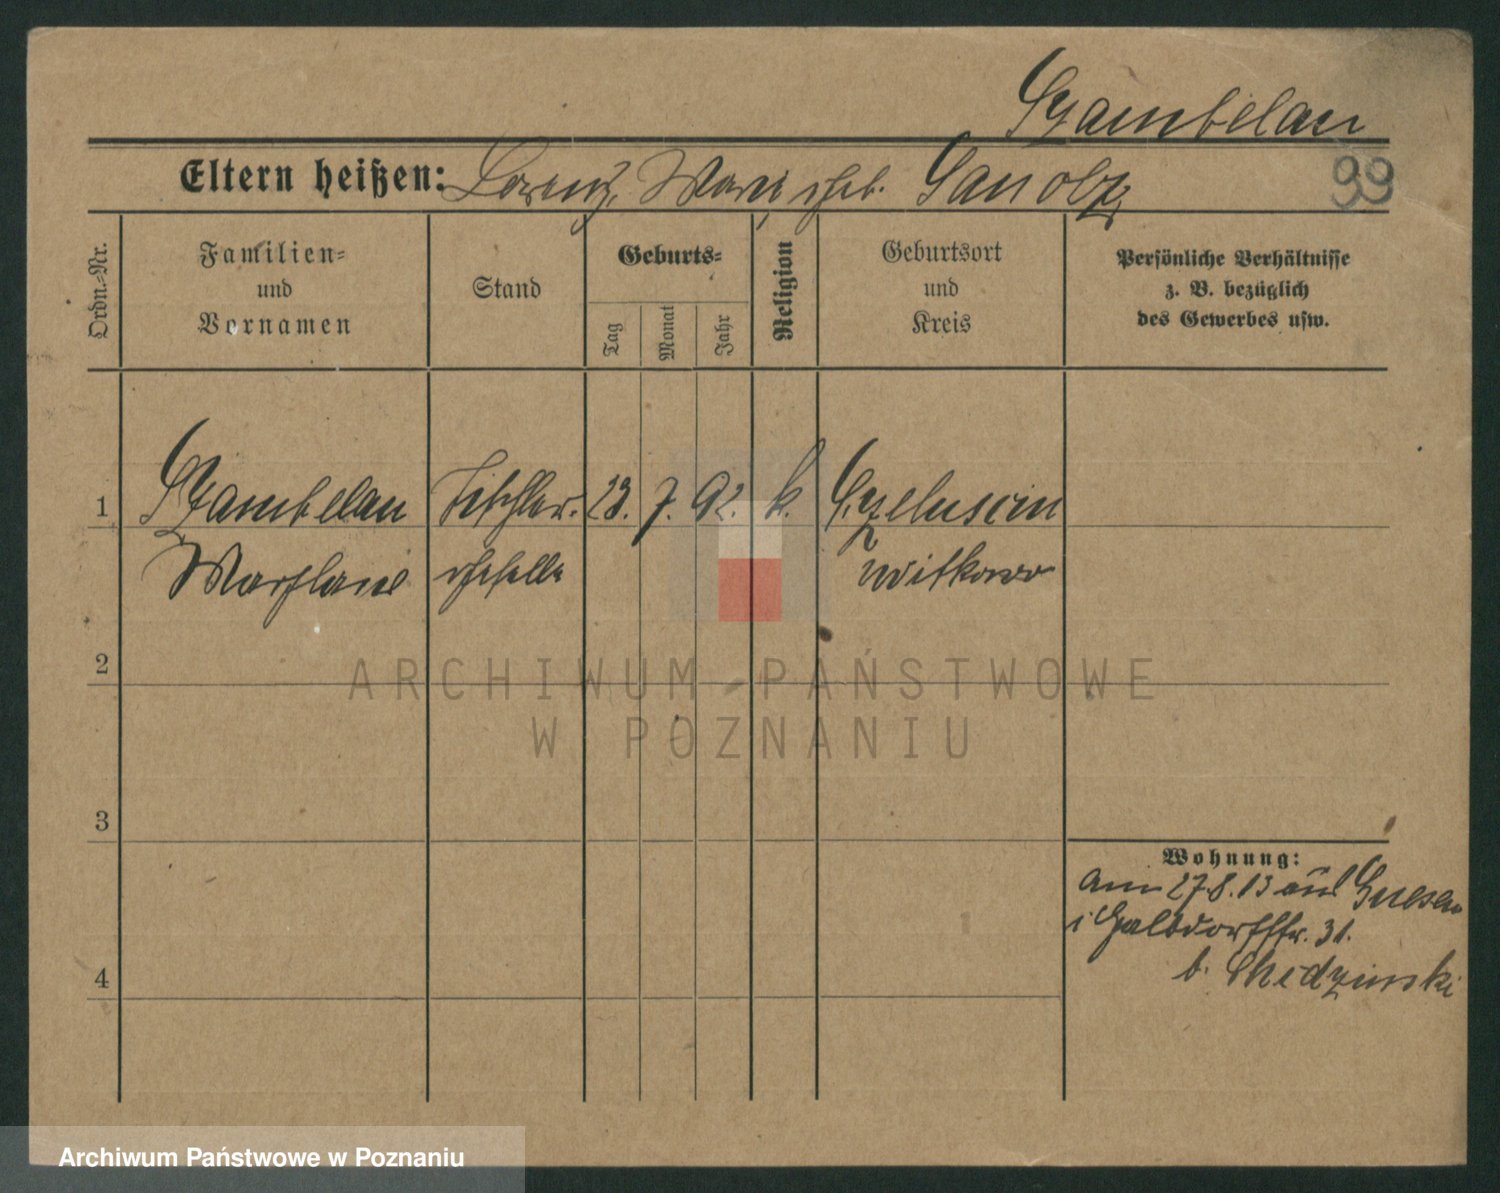 Szambelan
Eltern heißen: Lorenz, Marie geb.
99
Ordn.-Nr.
Familien-
und
Vornamen
Stand
Geburts-
Tag
Monat
Jahr
Religion
Geburtsort
und
Kreis
Persönliche Verhältnisse
z. B. bezüglich
des Gewerbes usw.
1 Szambelan Tischler- 23. 7. 92. k.
geselle Witkowo
2
3
Wohnung:
am 27.8.13 aus Gnesen
31.
4
b. Chedzinski
ARCHIWUM PAŃSTWOWE
W POZNANIU
Archiwum Państwowe w Poznaniu